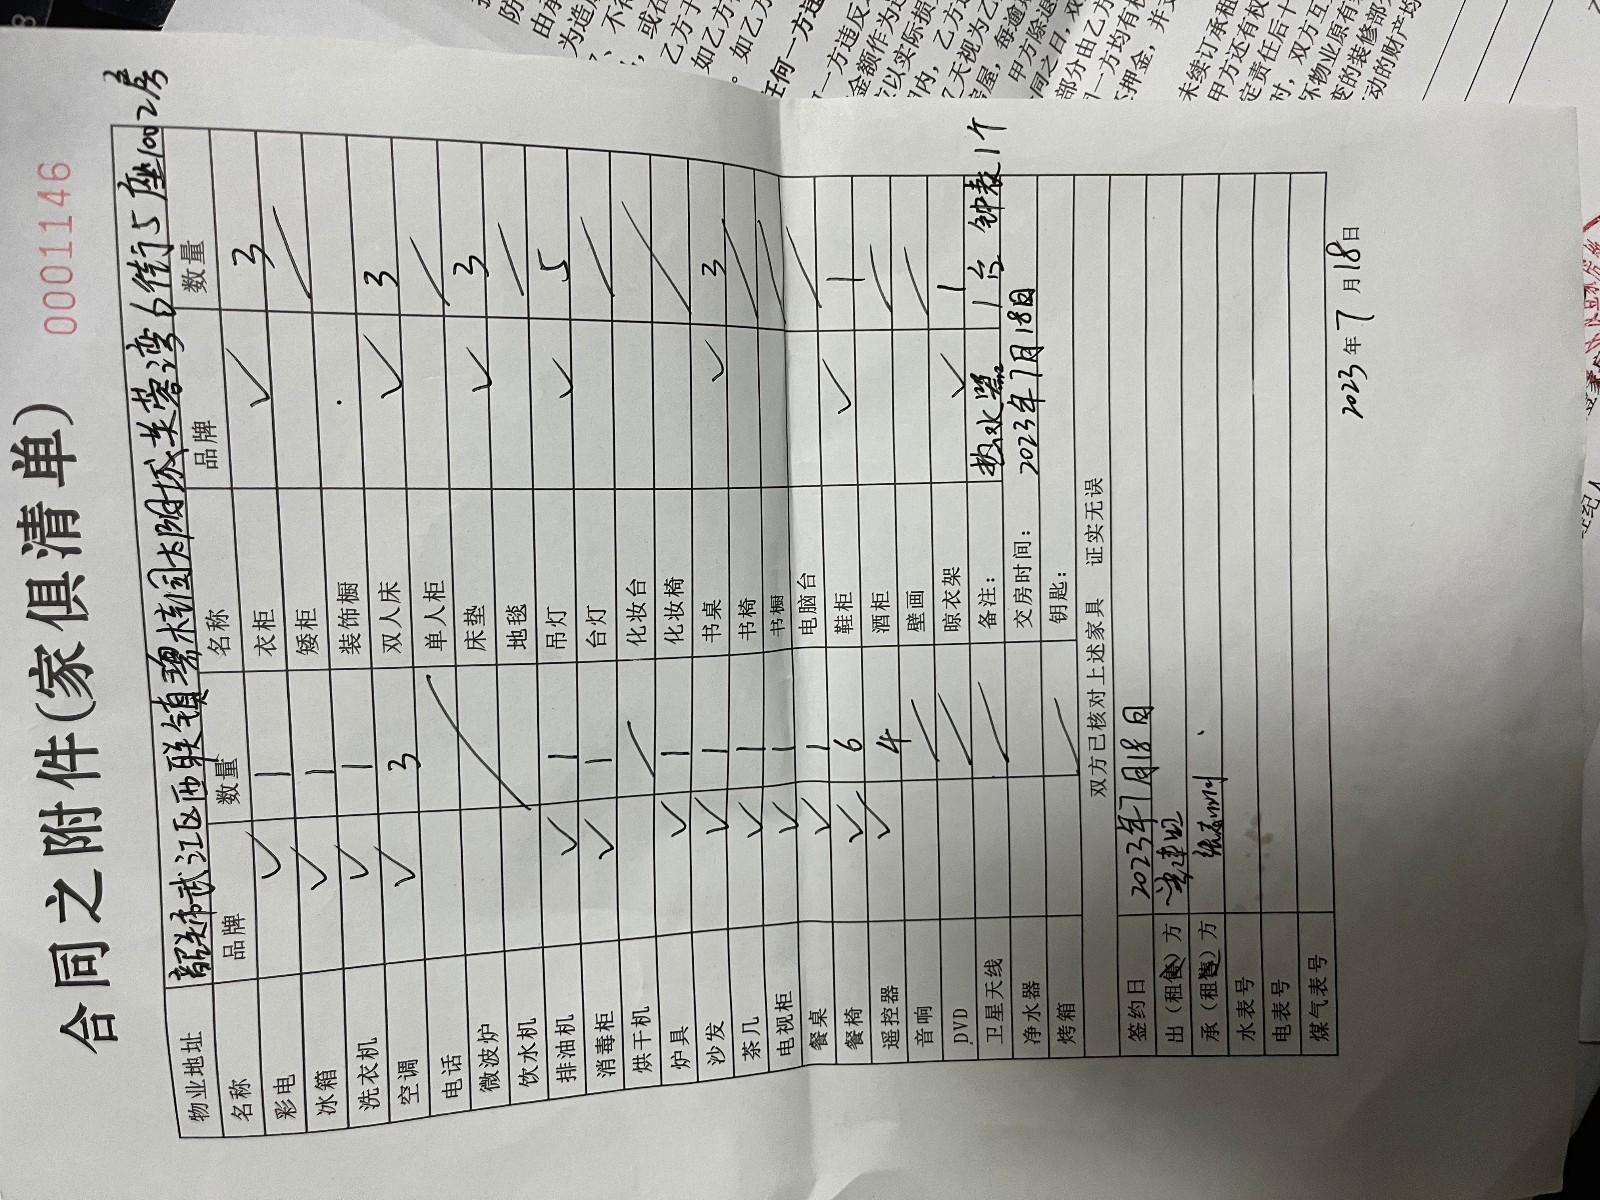 合同之附件(家俱清单)
0001146
物业地址 韶关市武江区西联镇碧桂园太阳城芙蓉湾6街5座1002房
名称 品牌 数量 名称 品牌 数量
彩电 ✓ 1 衣柜 ✓ 3
冰箱 ✓ 1 矮柜 /
洗衣机 ✓ 1 装饰橱
空调 ✓ 3 双人床 ✓ 3
电话 单人柜 /
微波炉 床垫 ✓ 3
饮水机 地毯 /
排油机 ✓ 1 吊灯 ✓ 5
消毒柜 ✓ 1 台灯 /
烘干机 / 化妆台
炉具 ✓ 1 化妆椅
沙发 ✓ 1 书桌 ✓ 3
茶几 ✓ 1 书椅 /
电视柜 ✓ 1 书橱 /
餐桌 ✓ 1 电脑台 /
餐椅 ✓ 6 鞋柜 ✓ 1
遥控器 ✓ 4 酒柜 /
音响 / 壁画 /
DVD / 晾衣架 ✓ 1
卫星天线 / 备注: 热水器 1台 钟表1个
净水器 交房时间: 2023年7月18日
烤箱 / 钥匙:
双方已核对上述家具 证实无误
签约日 2023年7月18日
出(租售)方
承(租售)方
水表号
电表号
煤气表号
2023年7月18日